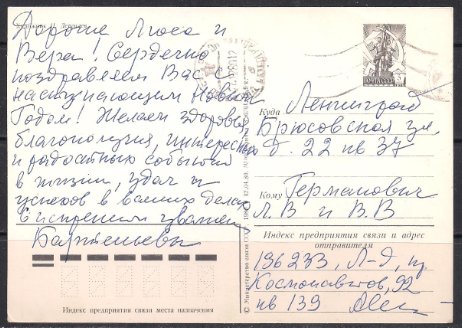 Дорогие Люся и
Вера! Сердечно
поздравляем Вас с
наступающим Новым
Годом! Желаем здоровья,
благополучия, интересных
и радостных событий
в жизни, удач и
успехов в ваших делах
С искренним уважен
Куда Ленинград
Брюсовская ул,
д. 22 кв 37
Кому Германович
Л.В и В.В
Индекс предприятия связи и адрес
отправителя
196233, Л-д, пр
Космонавтов, 92
кв 139
Индекс предприятия связи места назначения